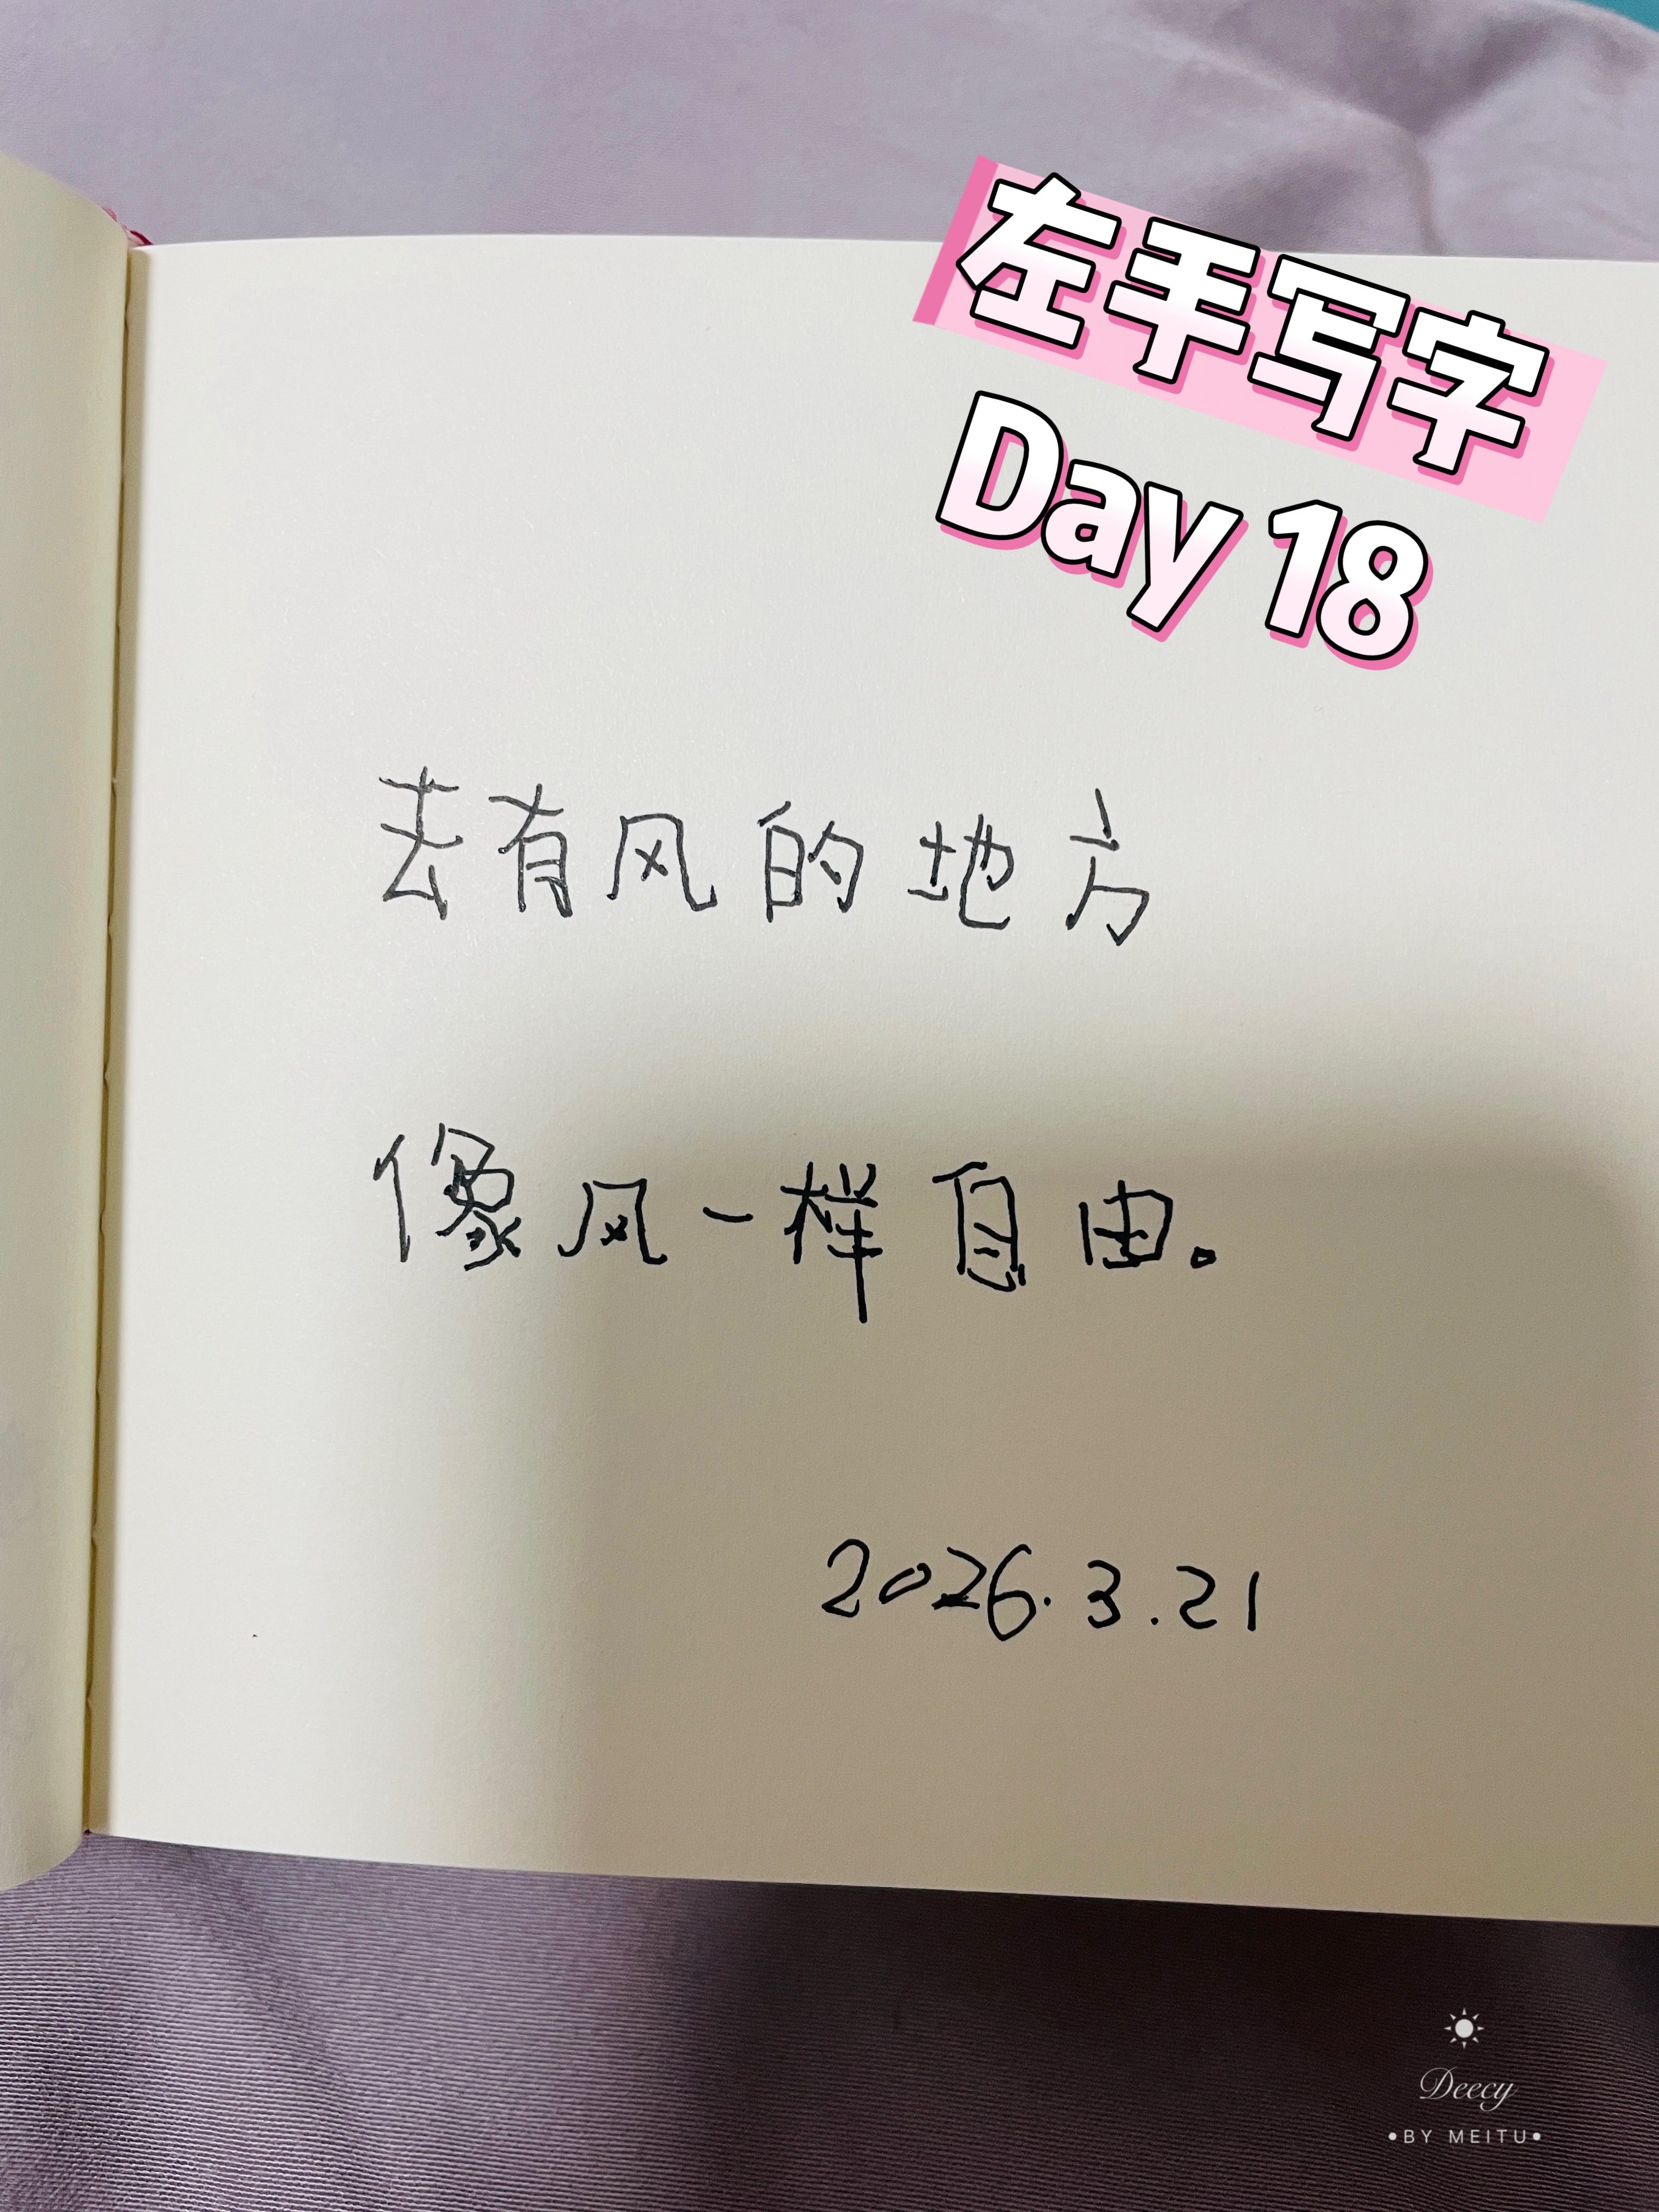 左手写字
Day 18
去有风的地方
像风一样自由。
2026.3.21
Deecy
•BY MEITU•